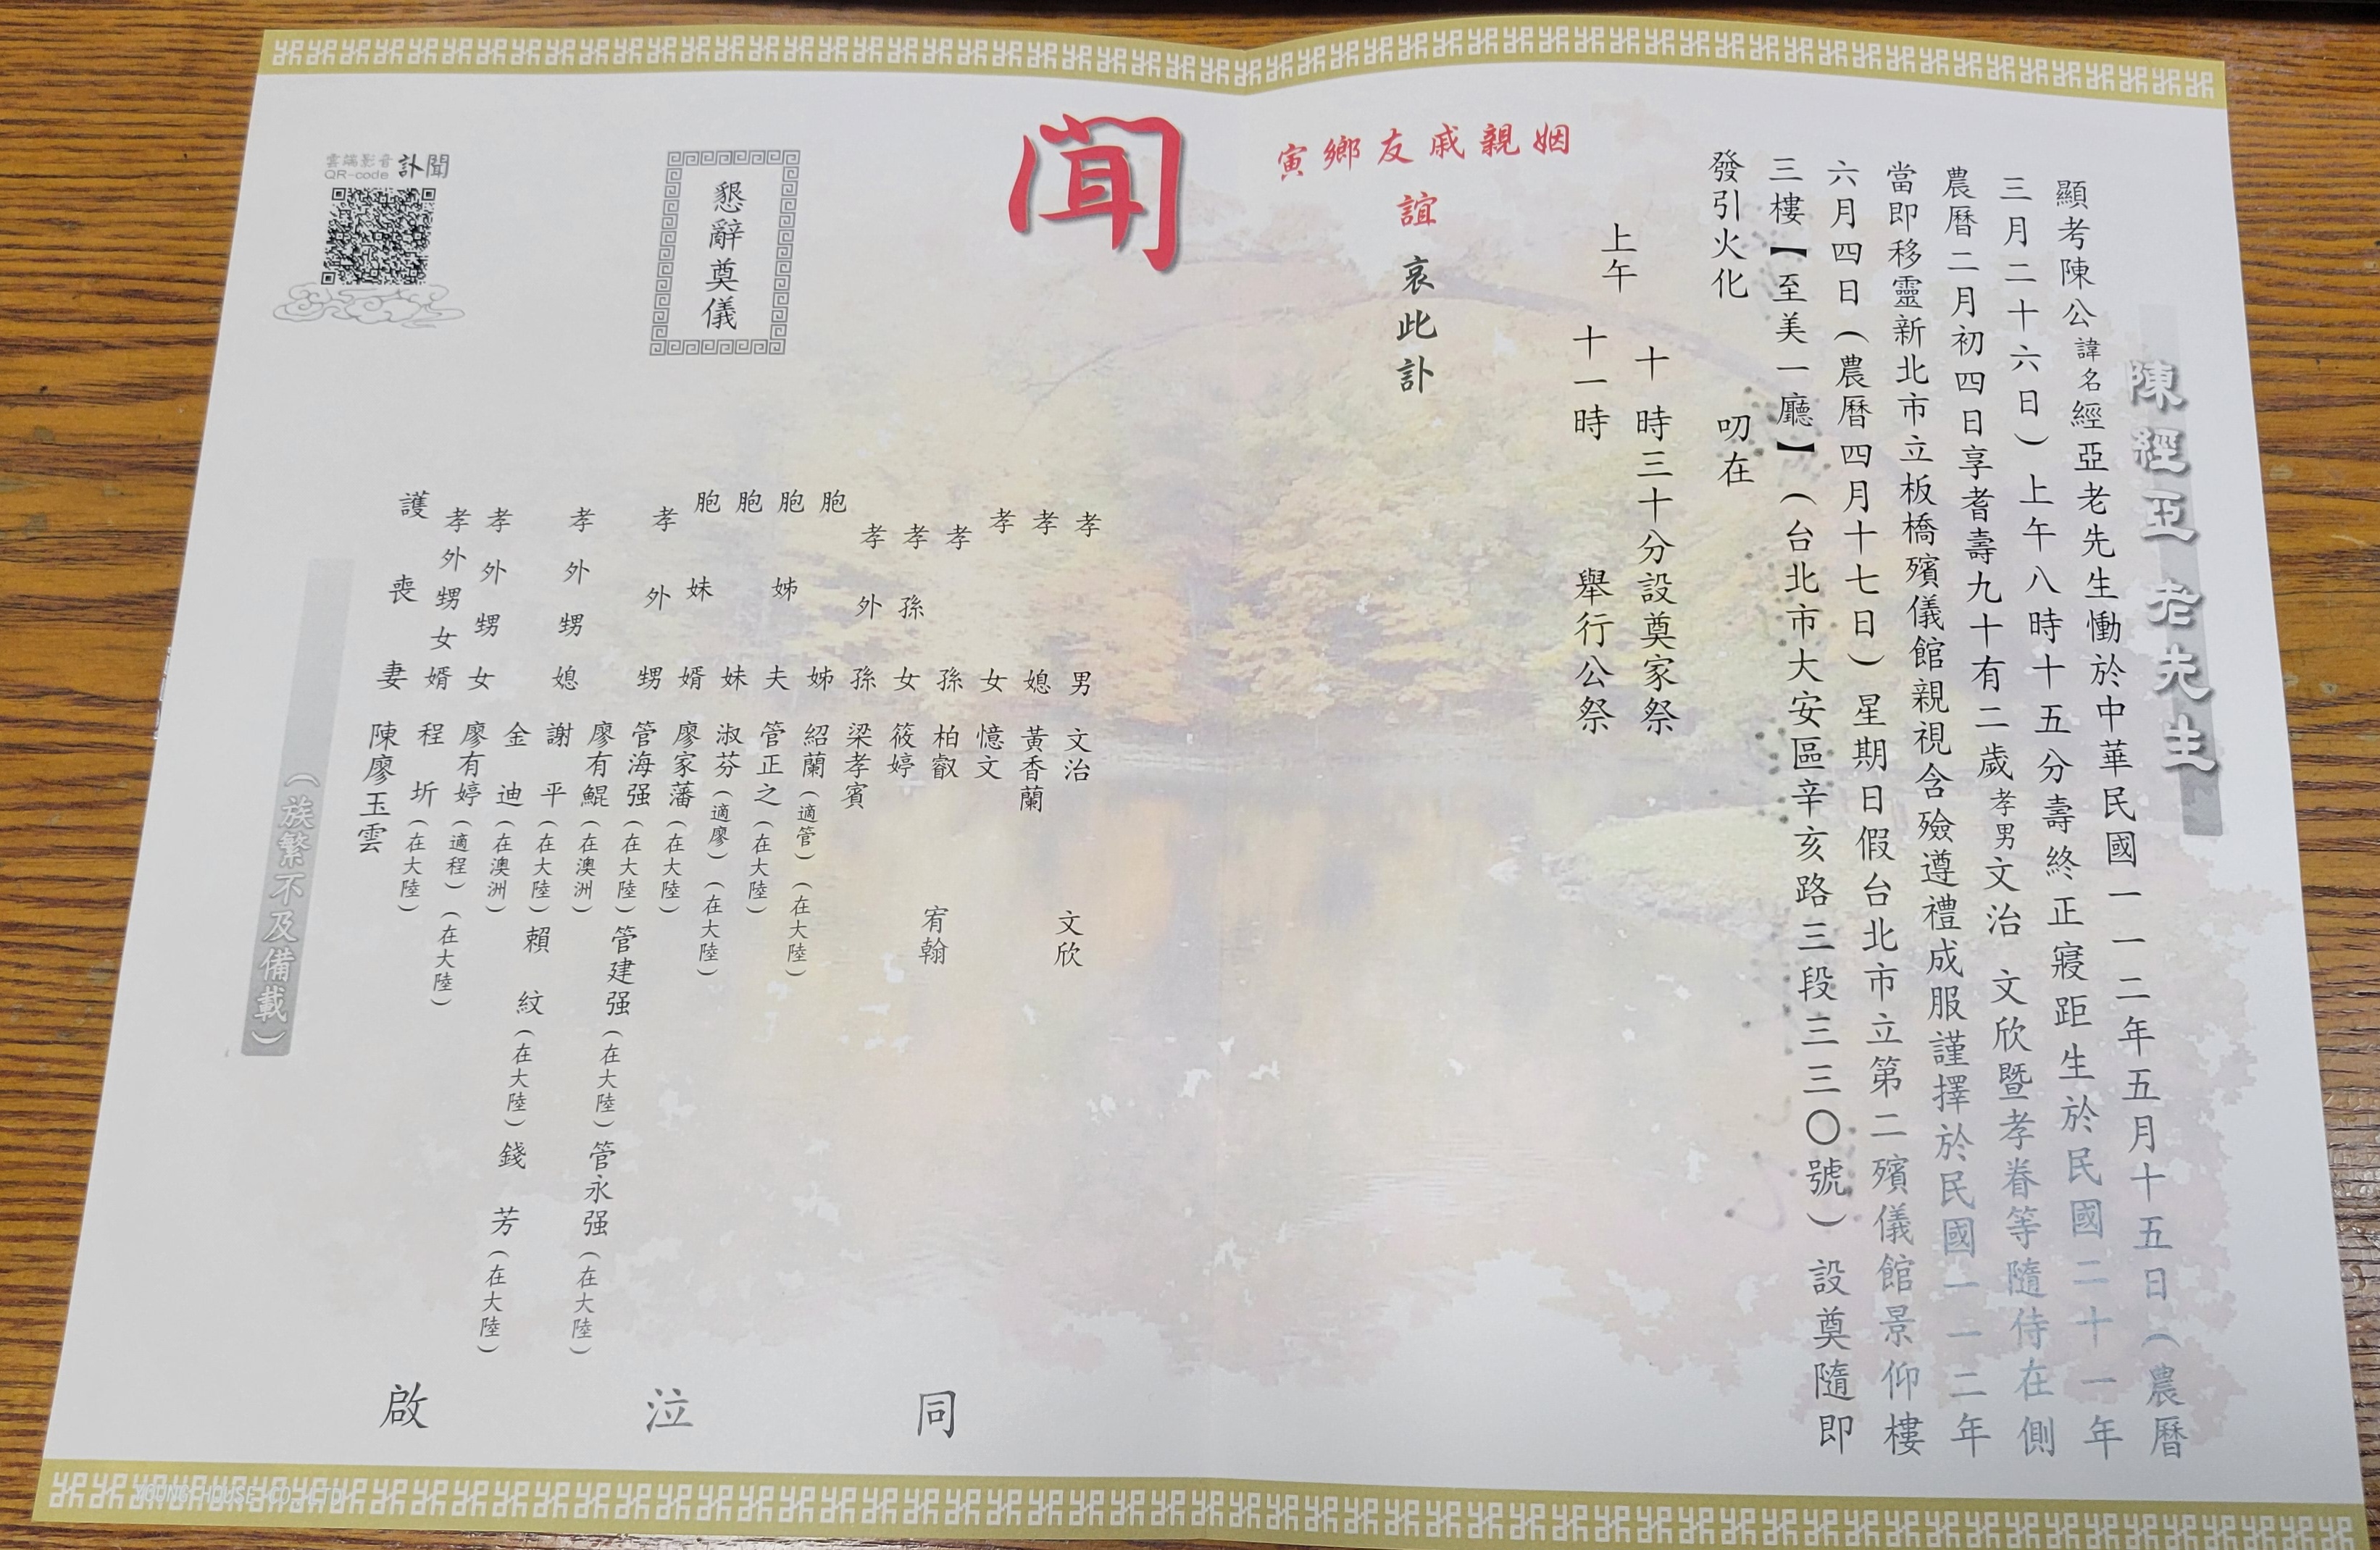 陳經亞老先生
顯考陳公諱名經亞老先生慟於中華民國一一二年五月十五日（農曆
三月二十六日）上午八時十五分壽終正寢距生於民國二十一年
農曆二月初四日享耆壽九十有二歲孝男文治 文欣暨孝眷等隨侍在側
當即移靈新北市立板橋殯儀館親視含殮遵禮成服謹擇於民國一一二年
六月四日（農曆四月十七日）星期日假台北市立第二殯儀館景仰樓
三樓【至美一廳】（台北市大安區辛亥路三段三三〇號）設奠隨即
發引火化 叨在
上午
十時三十分設奠家祭
十一時 舉行公祭
姻親戚友鄉寅
誼哀此訃
聞
懇辭奠儀
雲端影音
QR-code
訃聞
孝男 文治 文欣
孝媳 黃香蘭
孝女 憶文
孝孫 柏叡 宥翰
孝孫女 筱婷
孝外孫 梁孝賓
胞姊 紹蘭（適管）（在大陸）
胞姊夫 管正之（在大陸）
胞妹 淑芬（適廖）（在大陸）
胞妹婿 廖家藩（在大陸）
孝外甥 管海强（在大陸）管建强（在大陸）管永强（在大陸）
廖有鯤（在澳洲）
孝外甥媳 謝平（在大陸）賴紋（在大陸）錢芳（在大陸）
金迪（在澳洲）
孝外甥女 廖有婷（適程）（在大陸）
孝外甥女婿 程圻（在大陸）
護喪妻 陳廖玉雲
（族繁不及備載）
同泣啟
YOUNG HOUSE CO.,LTD